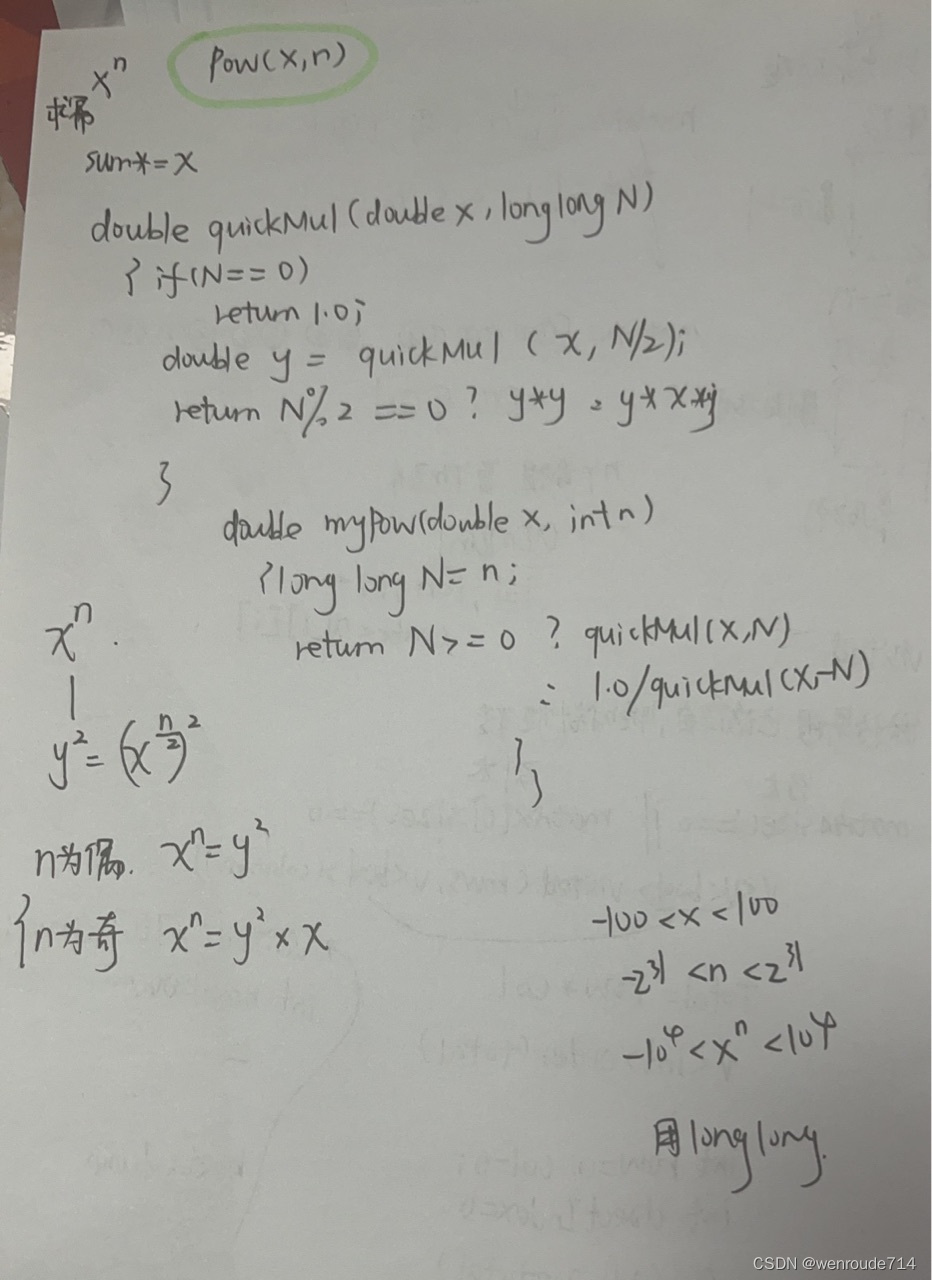 x^n Pow(x,n)
求幂
sum*=x
double quickMul(double x, long long N)
{ if(N==0)
return 1.0;
double y = quickMul (x, N/2);
return N%2 == 0 ? y*y : y*x*y
}
double myPow(double x, int n)
{long long N= n;
return N>=0 ? quickMul(x,N)
: 1.0/quickMul(x,-N)
}
}
x^n.
|
y^2=(x^{n/2})^2
n为偶. x^n=y^2
{n为奇 x^n=y^2×x
-100<x<100
-2^31<n<2^31
-10^4<x^n<10^4
用long long.
CSDN @wenroude714